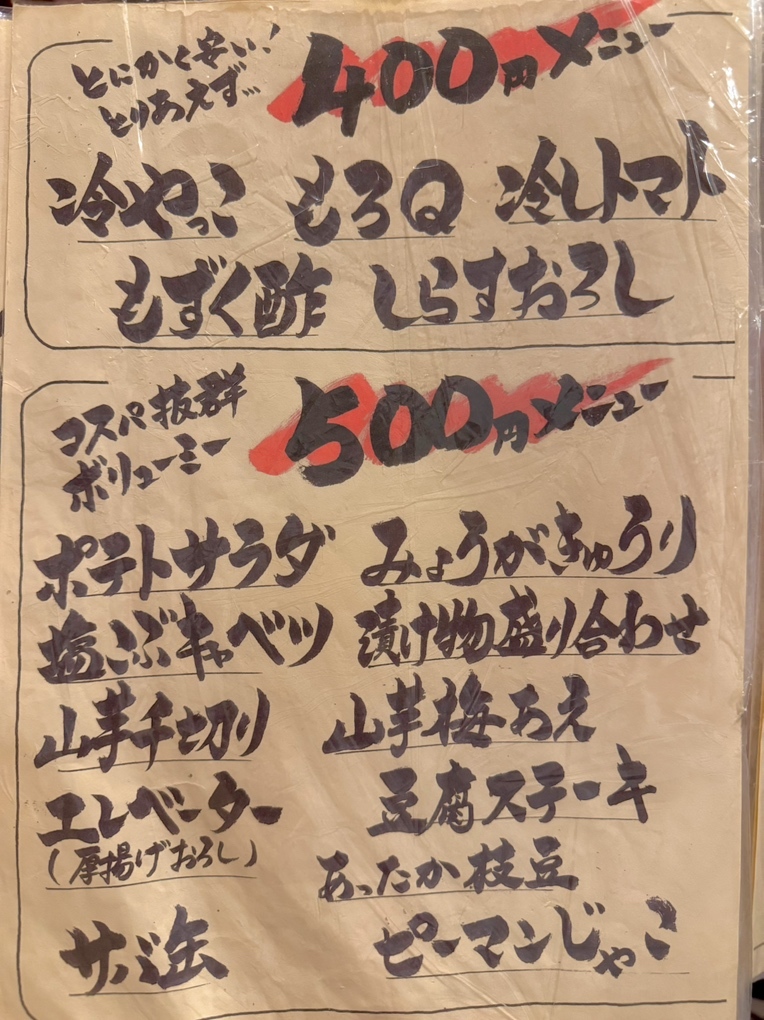 とにかく安い!
とりあえず…
400円メニュー
冷やっこ もろQ 冷しトマト
もずく酢 しらすおろし
コスパ抜群
ボリューミー
500円メニュー
ポテトサラダ みょうがきゅうり
塩こぶキャベツ 漬け物盛り合わせ
山芋千切り 山芋梅あえ
エレベーター 豆腐ステーキ
(厚揚げおろし) あったか枝豆
サバ缶 ピーマンじゃこ